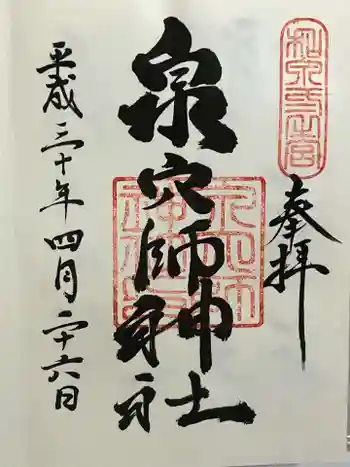 奉拝
泉穴師神社
平成三十年四月二十六日